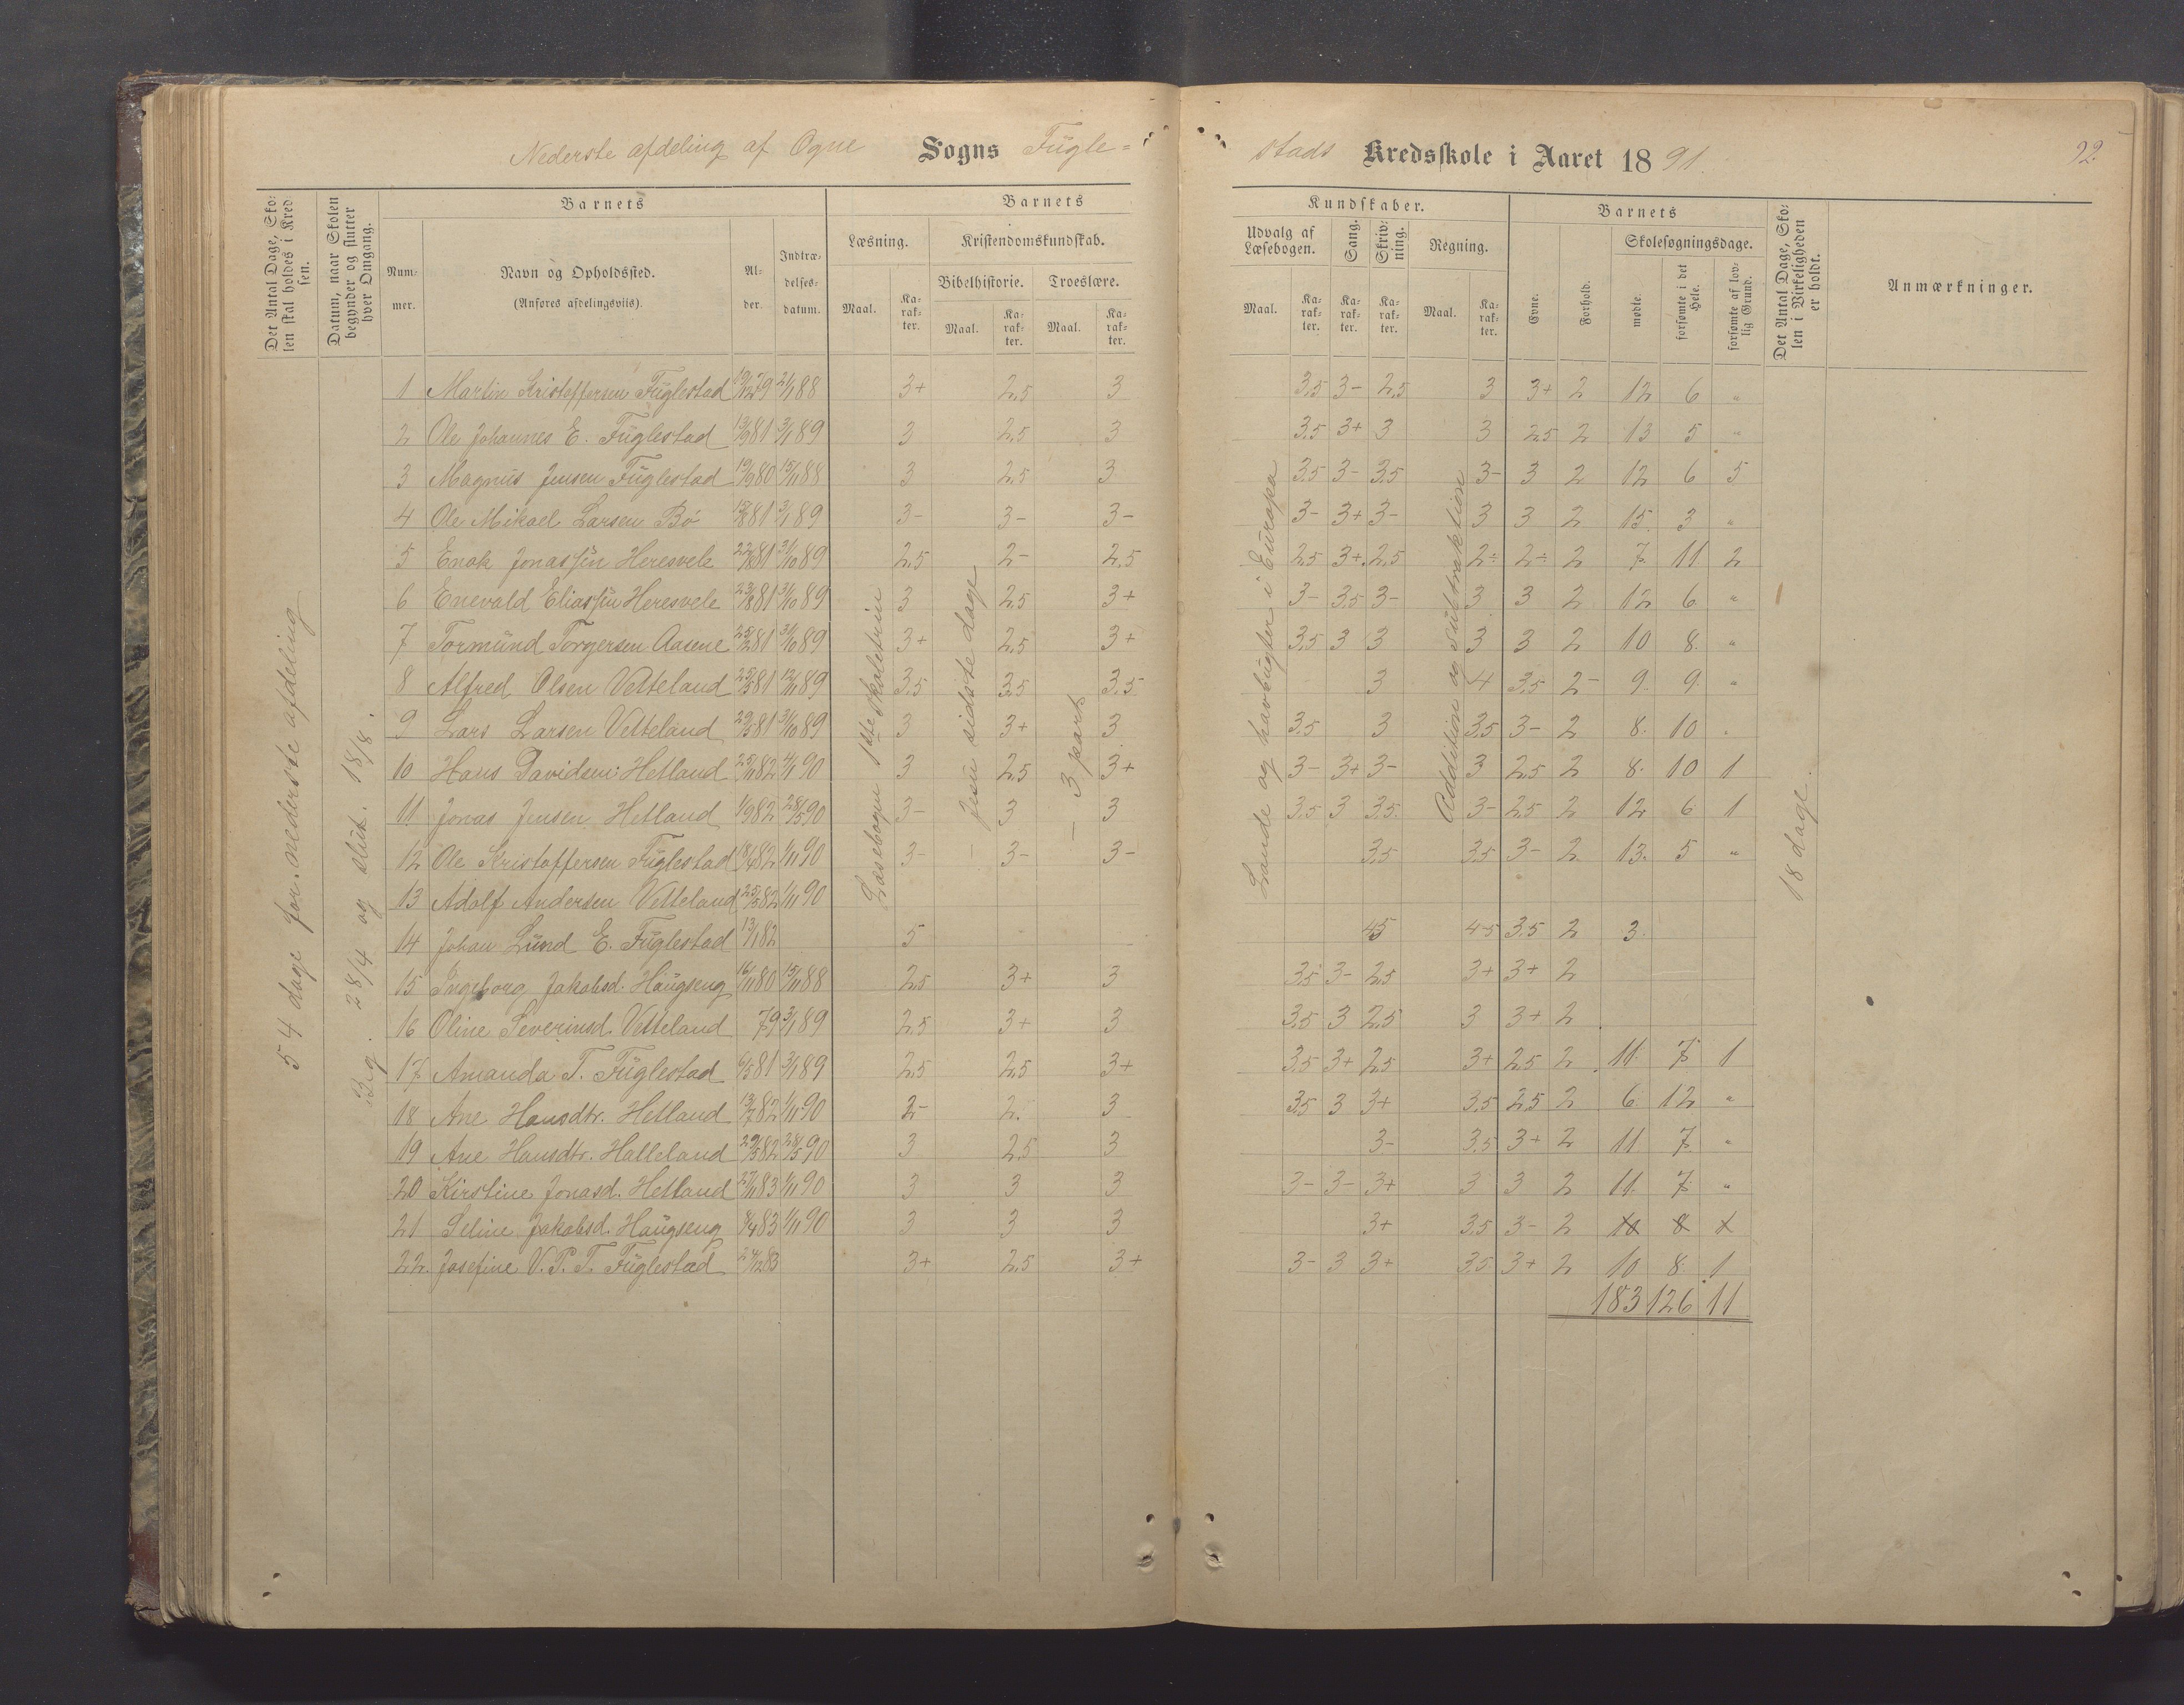 Nederste afdeling af Ogne Sogns Fügle=
stads Kredsskole i Aaret 1891.
92.
Det Antal Dage, Skolen skal holdes i Kredsen.
Datum, naar Skolen begynder og slutter hver Omgang.
Barnets
Nummer.
Navn og Opholdssted.
(Anføres afdelingsviis).
Alder.
Indtrædelsesdatum.
Barnets
Læsning.
Maal.
Karakter.
Kristendomskundskab.
Bibelhistorie.
Maal.
Karakter.
Troeslære.
Maal.
Karakter.
Kundskaber.
Udvalg af Læsebogen.
Maal.
Karakter.
Sang.
Karakter.
Skrivning.
Karakter.
Regning.
Maal.
Karakter.
Barnets
Evne.
Forhold.
Skolesøgningsdage.
mødte.
forsømte i det Hele.
forsømte af lovlig Grund.
Det Antal Dage, Skolen i Virkeligheden er holdt.
Anmærkninger.
54 dage for nederste afdeling
Beg. 28/4 og slut. 18/8.
Læsebogen 1ste skoletrin
Jesu sidste dage
— 3 part
Lande og havbugter i Europa
Addition og Subtraktion
18 dage.
1 Martin Kristoffersen Füglestad 19/12 79 2/1 88 3+ 2,5 3 3,5 3- 2,5 3 3+ 2 12 6 "
2 Ole Johannes E. Füglestad 13/9 81 3/1 89 3 2,5 3 3,5 3+ 3 3 2,5 2 13 5 "
3 Magnus Jensen Füglestad 19/9 80 15/11 88 3 2,5 3 3,5 3- 3,5 3- 3 2 12 6 5
4 Ole Mikael Larsen Bø 15/8 81 3/1 89 3- 3- 3- 3- 3+ 3- 3 3 2 15 3 "
5 Enok Jonassøn Heresvele 22/8 81 31/10 89 2,5 2- 2,5 2,5 3+ 2,5 2÷ 2÷ 2 7 11 2
6 Enevald Eliassøn Heresvele 23/8 81 31/10 89 3 2,5 3+ 3- 3,5 3- 3 3 2 12 6 "
7 Tormünd Torgersen Aasene 25/2 81 31/10 89 3+ 2,5 3+ 3,5 3 3 3 3 2 10 8 "
8 Alfred Olsen Vetteland 25/5 81 12/11 89 3,5 3,5 3,5 3 4 3,5 2- 9 9 "
9 Lars Larsen Vetteland 29/5 81 31/10 89 3 3+ 3 3,5 3 3,5 3- 2 8 10 "
10 Hans Davidsen Hetland 25/11 82 4/1 90 3 2,5 3+ 3- 3+ 3- 3 2,5 2 8 10 1
11 Jonas Jensen Hetland 1/9 82 28/5 90 3- 3 3 3,5 3 3,5 3- 2,5 2 12 6 1
12 Ole Kristoffersen Füglestad 18/4 82 1/11 90 3- 3- 3- 3,5 3,5 3- 2 13 5 "
13 Adolf Andersen Vetteland 25/5 82 1/11 90
14 Johan Lünd E. Füglestad 13/1 82 5 4,5 4,5 3,5 2 3
15 Ingeborg Jakobsd. Haügseng 16/11 80 15/11 88 2,5 3+ 3 3,5 3- 2,5 3+ 3+ 2
16 Oline Severinsd. Vetteland 79 3/1 89 2,5 3+ 3 3,5 3 2,5 3 3+ 2
17 Amanda T. Füglestad 6/5 81 3/1 89 2,5 2,5 3+ 3,5 3+ 2,5 3+ 2,5 2 11 7 1
18 Ane Hansdtr. Hetland 13/7 82 1/11 90 2- 2 3 3,5 3 3+ 3,5 2,5 2 6 12 "
19 Ane Hansdtr. Halleland 29/5 82 28/5 90 3 2,5 3 3- 3,5 3+ 2 11 7 "
20 Kirstine Jonasd. Hetland 27/11 83 1/11 90 3 3 3 3- 3- 3+ 3 3 2 11 7 "
21 Seline Jakobsd. Haügseng 8/4 83 1/11 90 3 3 3 3+ 3,5 3- 2 10 8 1
22. Josefine V. P. T. Füglestad 24/12 83 3+ 2,5 3+ 3- 3 3+ 3,5 3+ 2 10 8 1
183 126 11